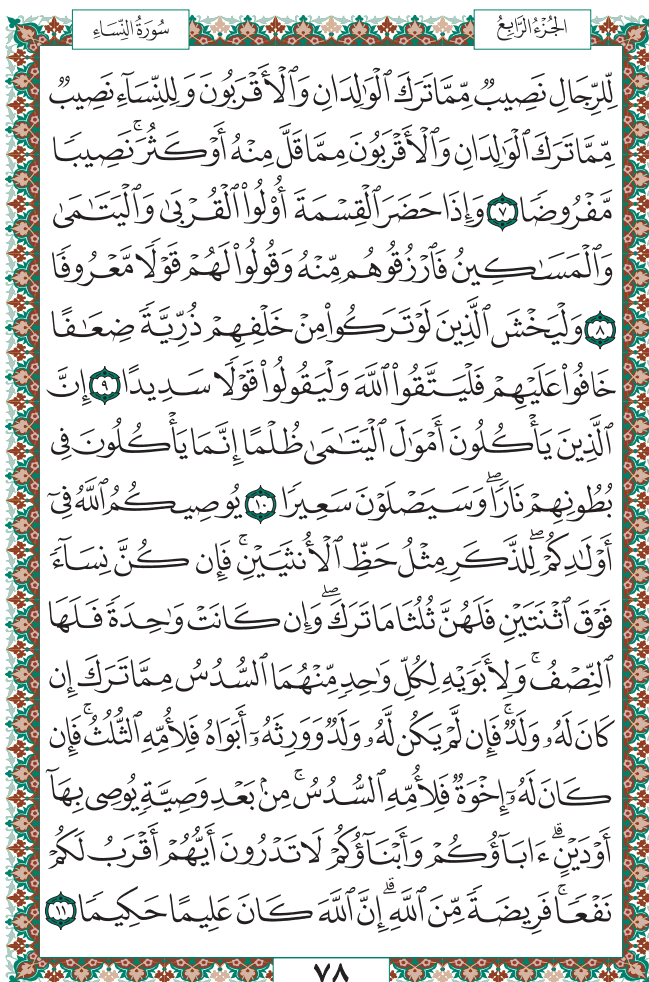 الجُزْءُ الرَّابِعُ
سُورَةُ النِّسَاءِ
لِّلرِّجَالِ نَصِيبٌ مِّمَّا تَرَكَ ٱلۡوَٰلِدَانِ وَٱلۡأَقۡرَبُونَ وَلِلنِّسَآءِ نَصِيبٌ
مِّمَّا تَرَكَ ٱلۡوَٰلِدَانِ وَٱلۡأَقۡرَبُونَ مِمَّا قَلَّ مِنۡهُ أَوۡ كَثُرَۚ نَصِيبٗا
مَّفۡرُوضٗا ٧ وَإِذَا حَضَرَ ٱلۡقِسۡمَةَ أُوْلُواْ ٱلۡقُرۡبَىٰ وَٱلۡيَتَٰمَىٰ
وَٱلۡمَسَٰكِينُ فَٱرۡزُقُوهُم مِّنۡهُ وَقُولُواْ لَهُمۡ قَوۡلٗا مَّعۡرُوفٗا
٨ وَلۡيَخۡشَ ٱلَّذِينَ لَوۡ تَرَكُواْ مِنۡ خَلۡفِهِمۡ ذُرِّيَّةٗ ضِعَٰفًا
خَافُواْ عَلَيۡهِمۡ فَلۡيَتَّقُواْ ٱللَّهَ وَلۡيَقُولُواْ قَوۡلٗا سَدِيدًا ٩ إِنَّ
ٱلَّذِينَ يَأۡكُلُونَ أَمۡوَٰلَ ٱلۡيَتَٰمَىٰ ظُلۡمًا إِنَّمَا يَأۡكُلُونَ فِي
بُطُونِهِمۡ نَارٗاۖ وَسَيَصۡلَوۡنَ سَعِيرٗا ١٠ يُوصِيكُمُ ٱللَّهُ فِيٓ
أَوۡلَٰدِكُمۡۖ لِلذَّكَرِ مِثۡلُ حَظِّ ٱلۡأُنثَيَيۡنِۚ فَإِن كُنَّ نِسَآءٗ
فَوۡقَ ٱثۡنَتَيۡنِ فَلَهُنَّ ثُلُثَا مَا تَرَكَۖ وَإِن كَانَتۡ وَٰحِدَةٗ فَلَهَا
ٱلنِّصۡفُۚ وَلِأَبَوَيۡهِ لِكُلِّ وَٰحِدٖ مِّنۡهُمَا ٱلسُّدُسُ مِمَّا تَرَكَ إِن
كَانَ لَهُۥ وَلَدٞۚ فَإِن لَّمۡ يَكُن لَّهُۥ وَلَدٞ وَوَرِثَهُۥٓ أَبَوَاهُ فَلِأُمِّهِ ٱلثُّلُثُۚ فَإِن
كَانَ لَهُۥٓ إِخۡوَةٞ فَلِأُمِّهِ ٱلسُّدُسُۚ مِنۢ بَعۡدِ وَصِيَّةٖ يُوصِي بِهَآ
أَوۡ دَيۡنٍۗ ءَابَآؤُكُمۡ وَأَبۡنَآؤُكُمۡ لَا تَدۡرُونَ أَيُّهُمۡ أَقۡرَبُ لَكُمۡ
نَفۡعٗاۚ فَرِيضَةٗ مِّنَ ٱللَّهِۗ إِنَّ ٱللَّهَ كَانَ عَلِيمًا حَكِيمٗا ١١
٧٨